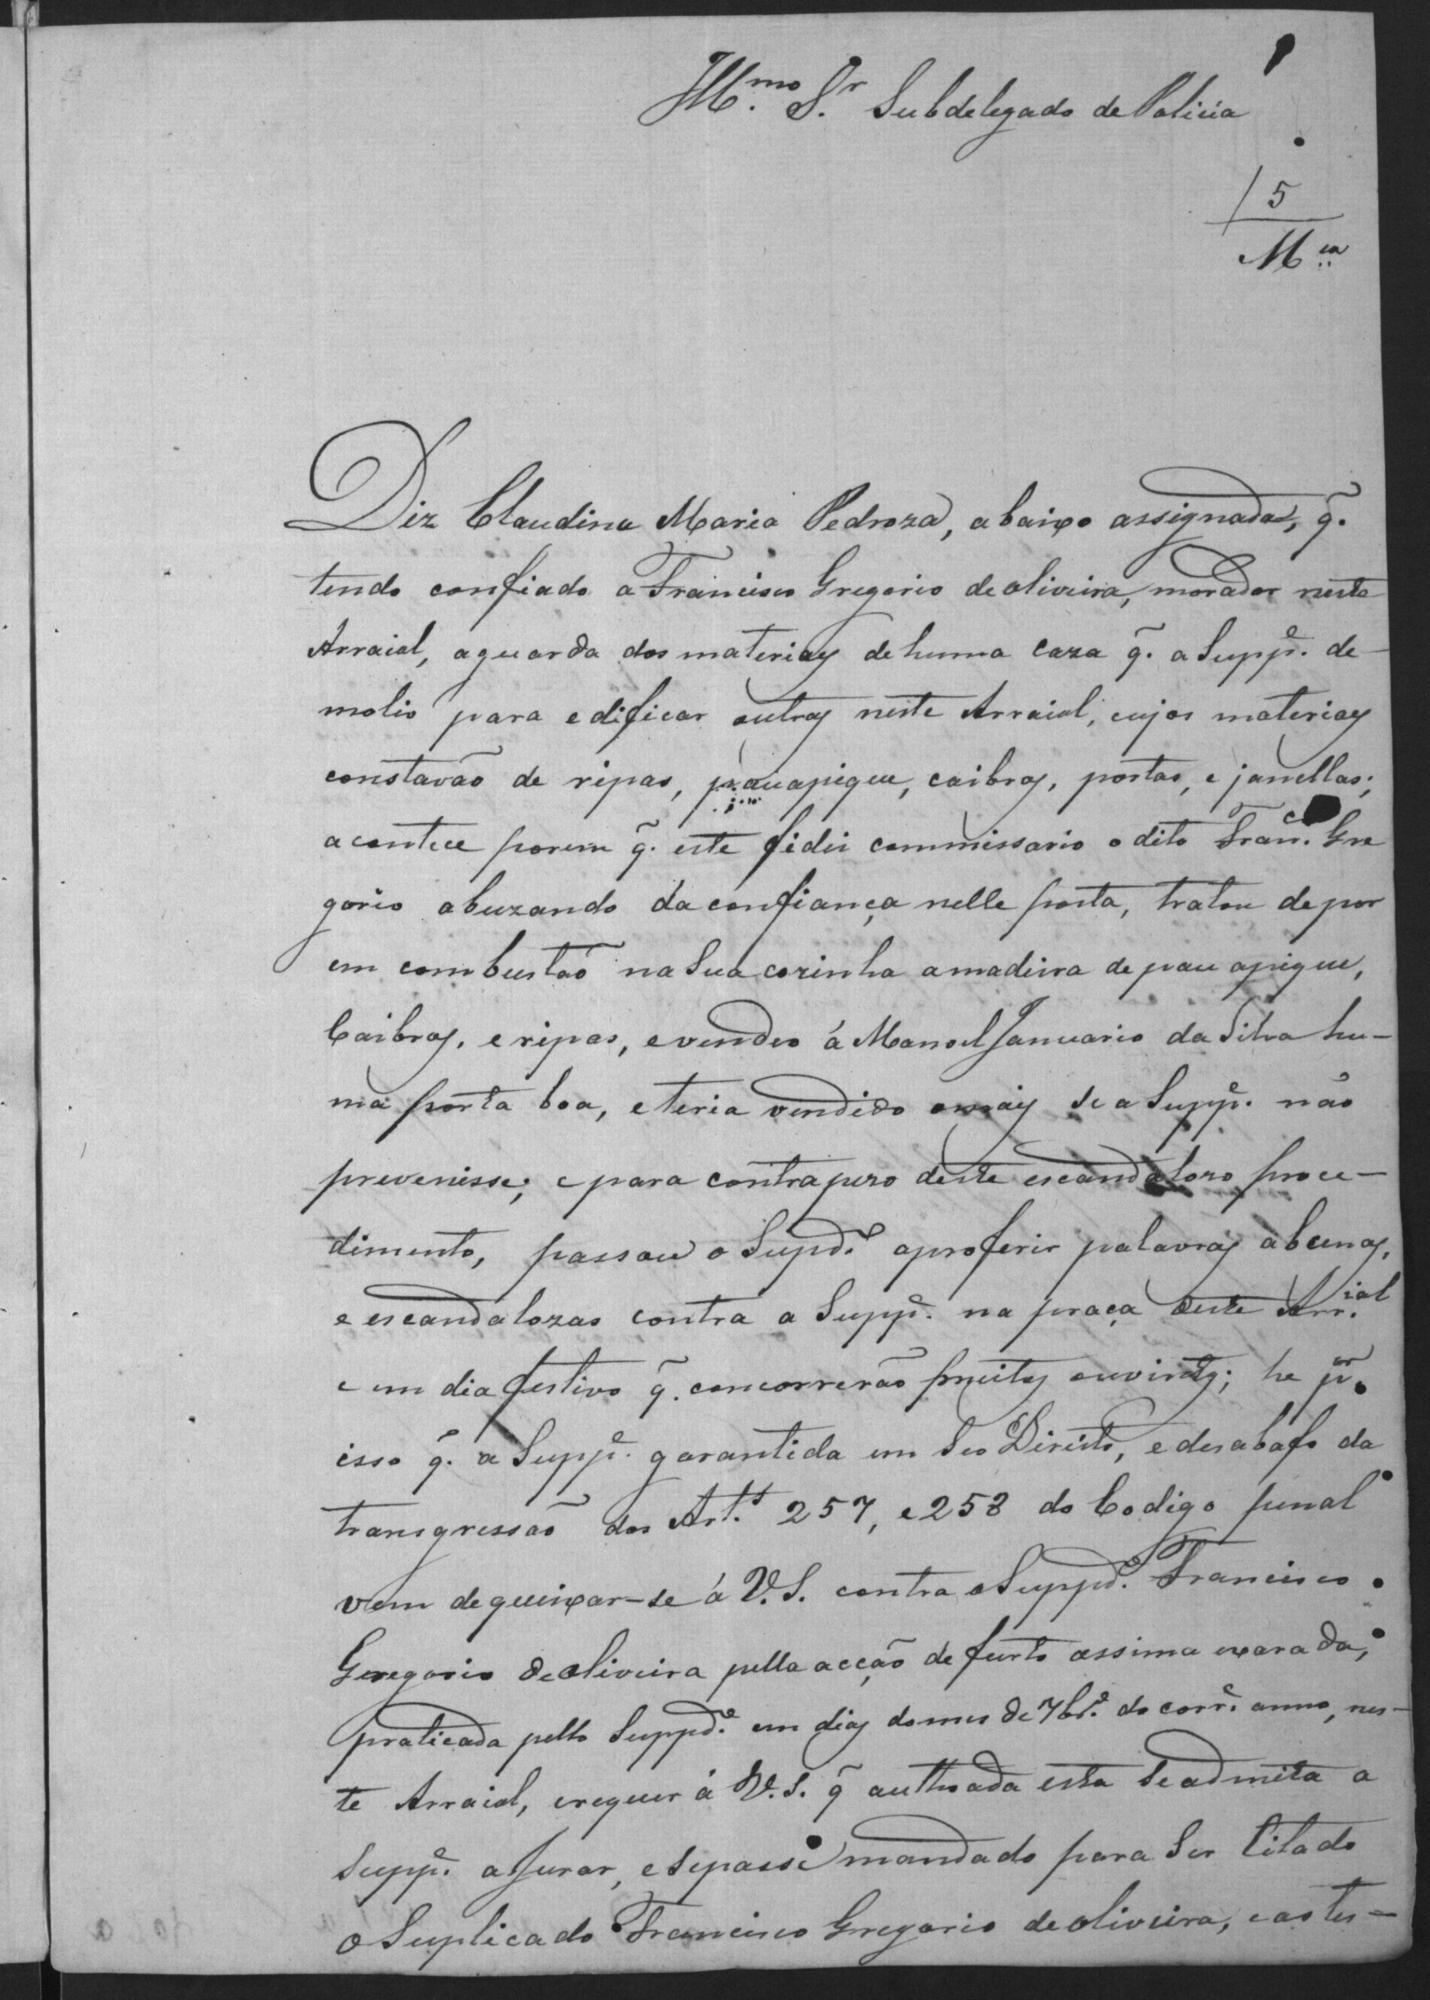 Illmo. Sr. Subdelegado de Policia
5
Mca
Diz Claudina Maria Pedroza, abaixo assignada, q̃.
tendo confiado a Francisco Gregorio de oliveira, morador neste
Arraial, aguarda dos materiay de huma caza q̃. a Suppe. de-
molio para edificar outray neste Arraial, cujos materiay
constavão de ripas, páuapique, caibroy, portas, e janellas;
acontece porem q̃. este fidei commissario o dito Franco. Gre
gorio abuzando da confiança nelle posta, tratou de por
em combustaõ na Sua cozinha amadeira de pau apique,
Caibroy, e ripas, e vendeo á Manoel Januario da Silva hu-
ma porta boa, eteria vendido omaiy se a Suppe. não
prevenisse; e para contrapezo deste escandalozo proce-
dimento, passou o Supdo. aproferir palavray abcenay,
e escandalozas contra a Suppe. na praça deste Arrial.
e em dia festivo q̃. concorrerão muitoy ouvintey; he pr.
isso q̃. a Suppe. garantida em Seo Direito, e desabafo da
transgressaõ dos Arts. 257, e 258 do Codigo penal
vem dequeixar-se á V. S. contra o Suppdo. Francisco
Gregorio de oliveira pella acção de furto assima exarada,
praticada pello Suppdo. em diay do mes de 7bre. do corre. anno, nes-
te Arraial, erequer á V. S. q̃ authoada esta Se admita a
Suppe. a Jurar, e sepasse mandado para Ser Citado
o Suplicado Francisco Gregorio de oliveira, e as tes-